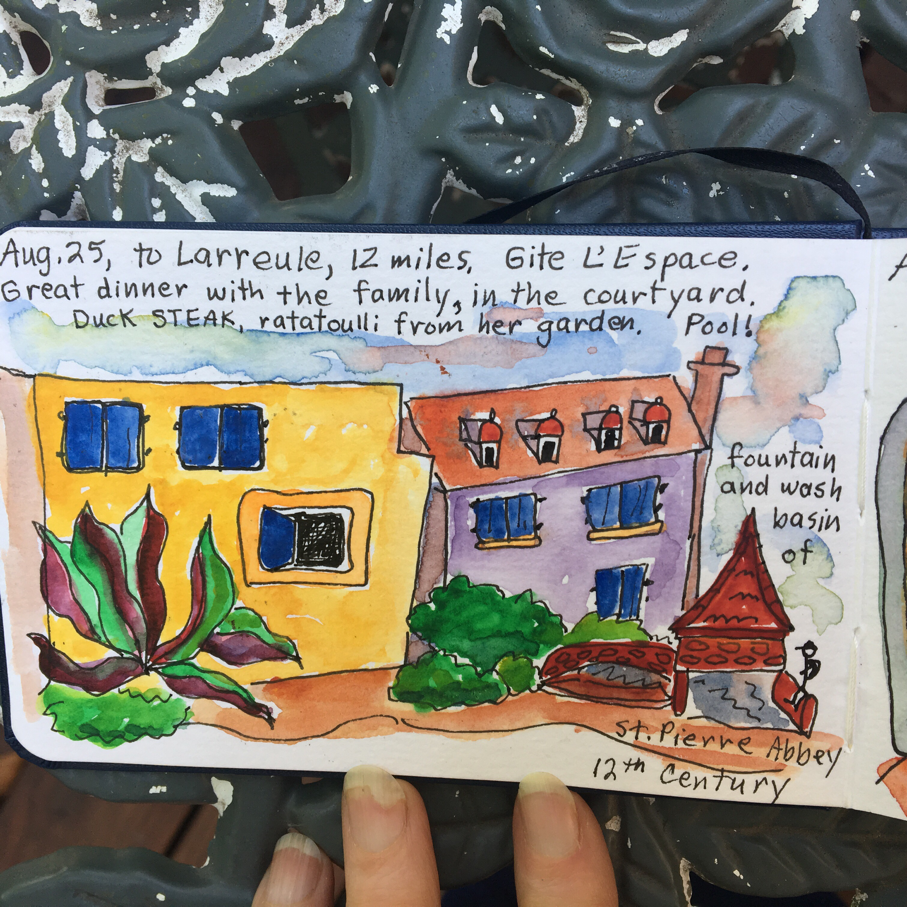 Aug. 25, to Larreule, 12 miles. Gite L'Espace.
Great dinner with the family, in the courtyard.
DucK STEAK, ratatoulli from her garden. Pool!
fountain
and wash
basin
of
St. Pierre Abbey
12th Century